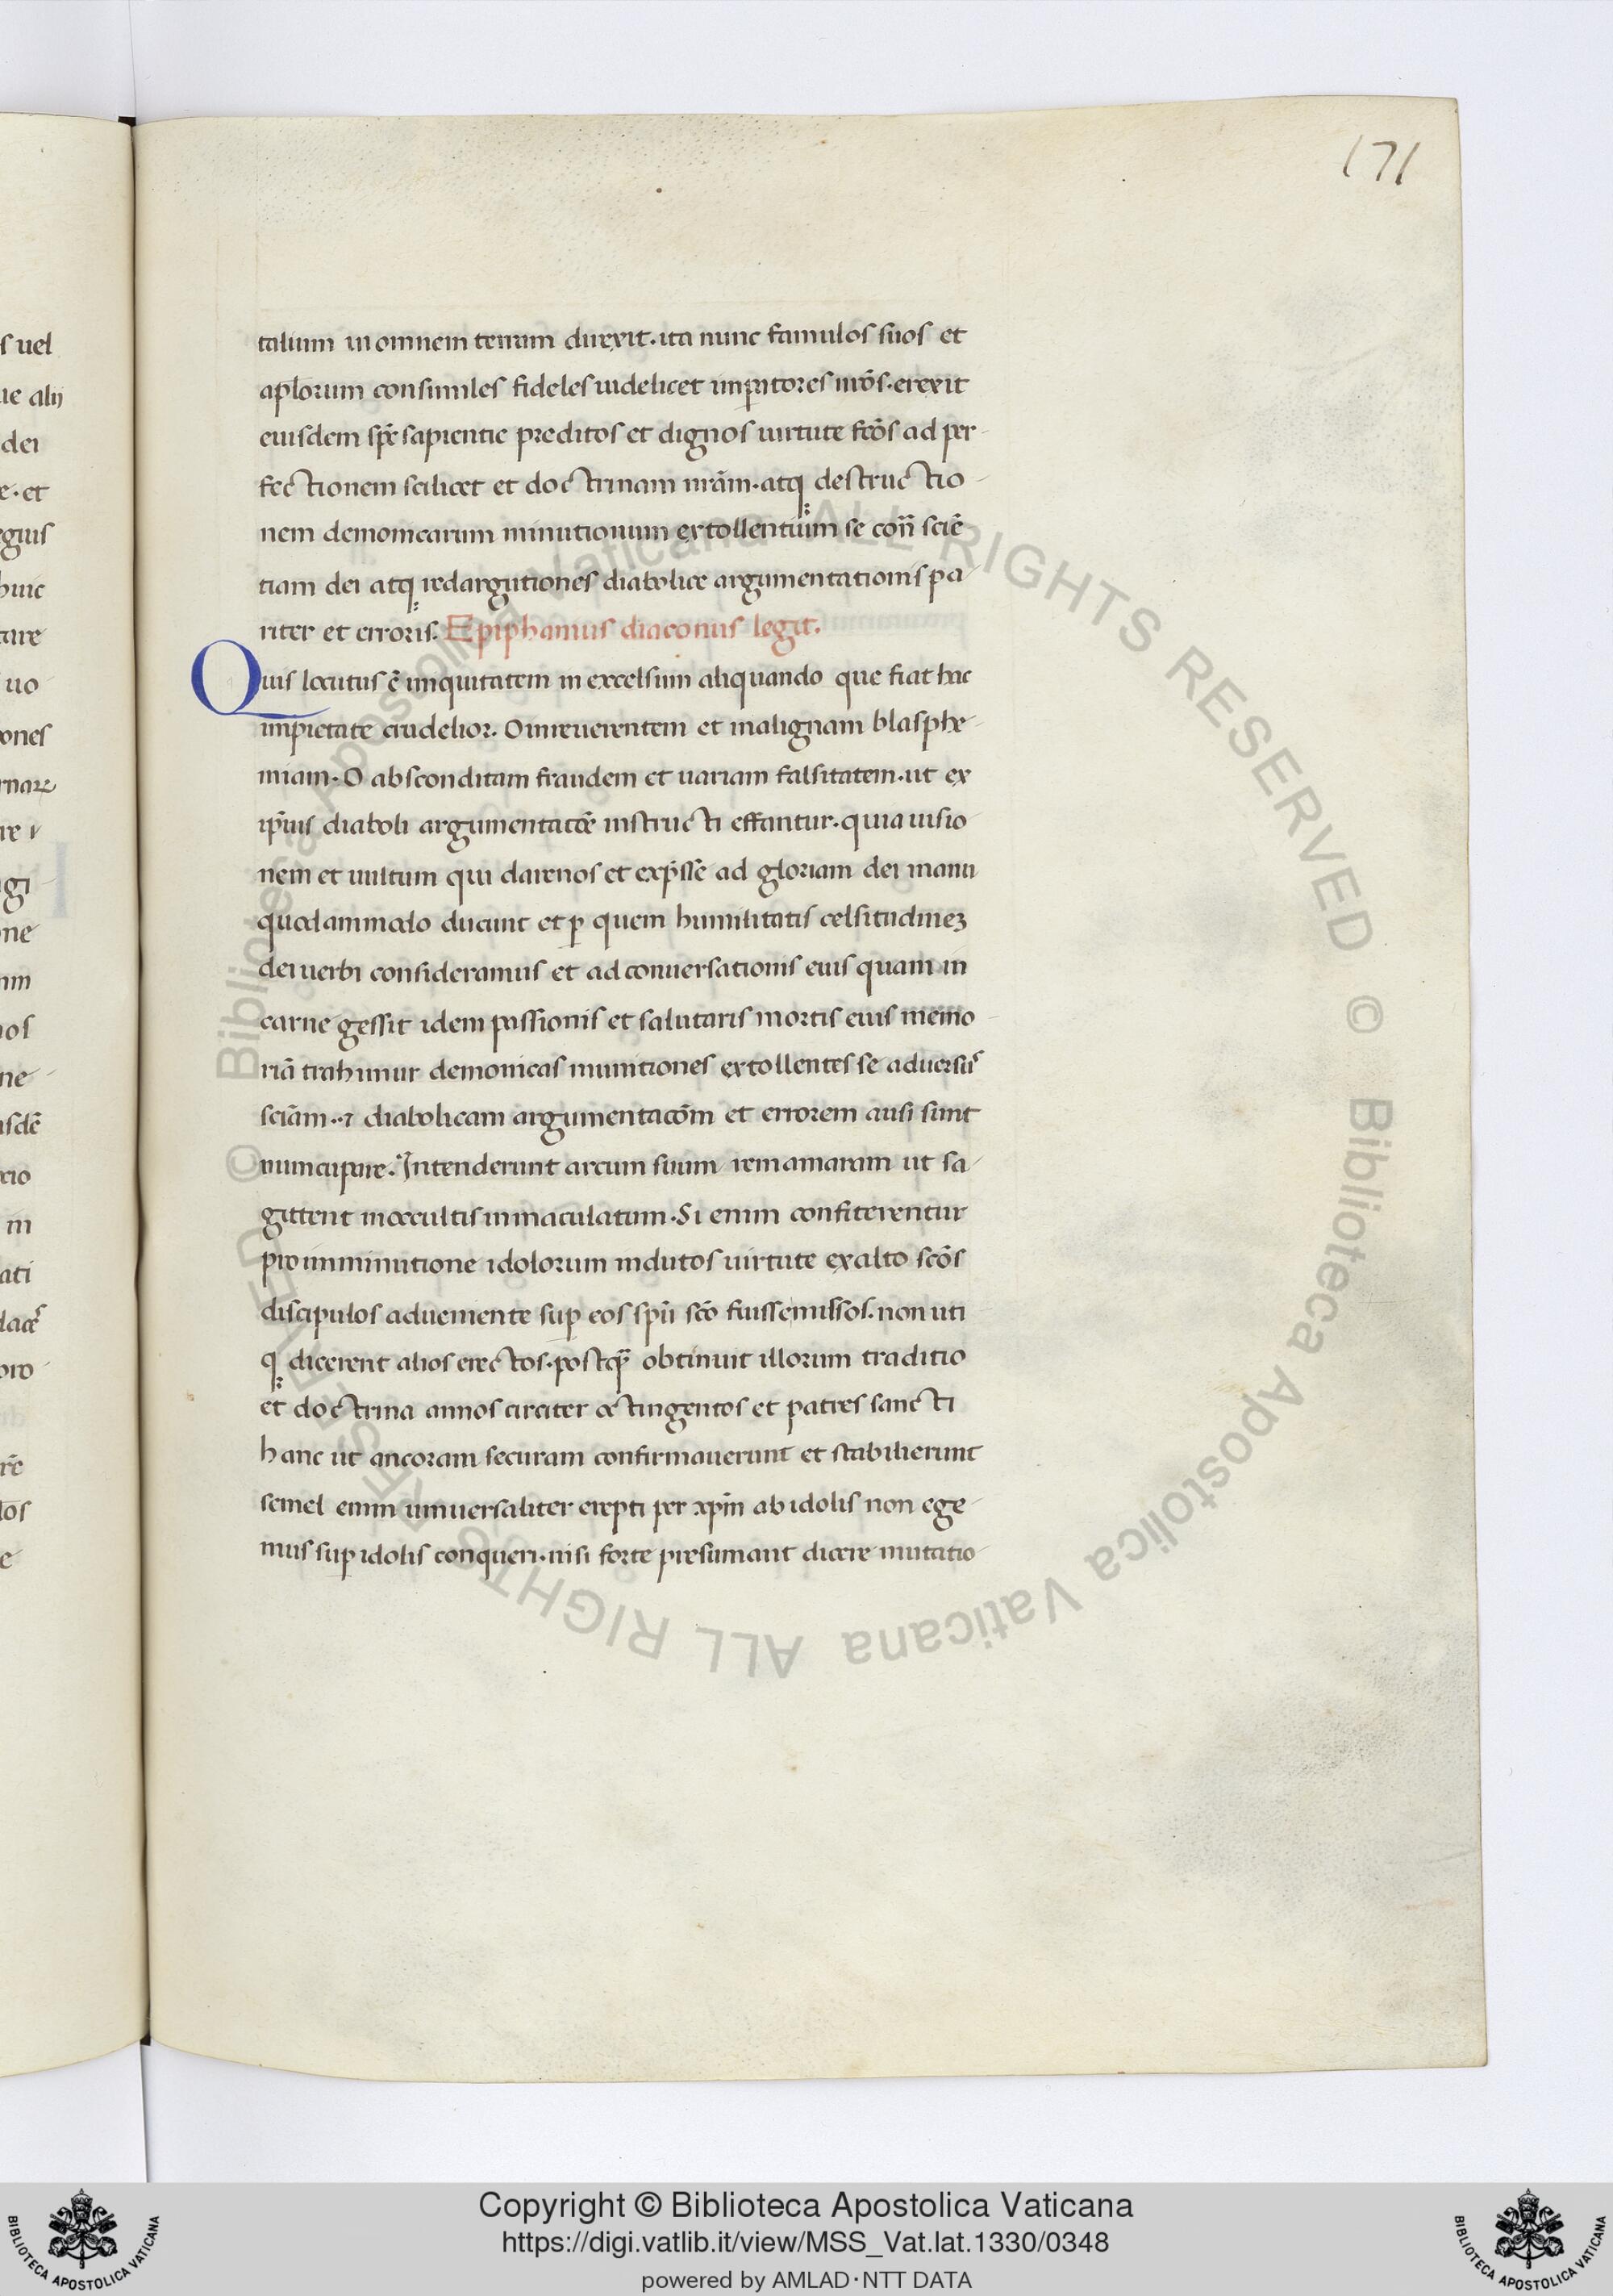 171
talium in omnem terram direxit. ita nunc famulos suos et
aplorum consimiles fideles uidelicet imꝑatores nrōs. erexit
eiusdem spē sapientie preditos et dignos uirtute fcōs ad per-
fectionem scilicet et doctrinam nrām. atq destructio-
nem demonicarum minutionum extollentium se con̄ sciē-
tiam dei atq redargutiones diabolice argumentationis pa-
riter et erroris. Epiphanius diaconus legit.
Quis locutus ē iniquitatem in excelsum aliquando que fiat hac
impietate crudelior. O inreuerentem et malignam blasphe-
miam. O absconditam fraudem et uariam falsitatem. ut ex
ip̄ius diaboli argumentatōe instructi effantur. quia uisio-
nem et uultum qui darenos et exp̄sse ad gloriam dei manu
quodammodo ducunt et ꝑ quem humilitatis celsitudineꝫ
dei uerbi consideramus et ad conuersationis eius quam in
carne gessit idem passionis et salutaris mortis eius memo-
riā trahimur demonicas munitiones extollentes se aduersus
sciām. ⁊ diabolicam argumentacōm et errorem ausi sunt
nuncupare. Intenderunt arcum suum rem amaram ut sa-
gittent in occultis inmaculatum. Si enim confiterentur
pro imminutione idolorum indutos uirtute ex alto scōs
discipulos adueniente suꝑ eos spū scō fuisse missos. non uti
q dicerent alios erectos. postq̄ obtinuit illorum traditio
et doctrina annos circiter octingentos et patres sancti
hanc ut ancoram securam confirmauerunt et stabilierunt
semel enim uniuersaliter erepti per xp̄m ab idolis non ege-
mus suꝑ idolis conqueri. nisi forte presumant dicere mutatio-
s uel
ue alij
dei
e. et
egius
huic
uo
ones
ne
nos
ne
usdē
cio
in
ati
pro
© Biblioteca Apostolica Vaticana ALL RIGHTS RESERVED © Biblioteca Apostolica Vaticana ALL RIGHTS RESERVED
Copyright © Biblioteca Apostolica Vaticana
https://digi.vatlib.it/view/MSS_Vat.lat.1330/0348
powered by AMLAD・NTT DATA
BIBLIOTECA APOSTOLICA VATICANA
BIBLIOTECA APOSTOLICA VATICANA